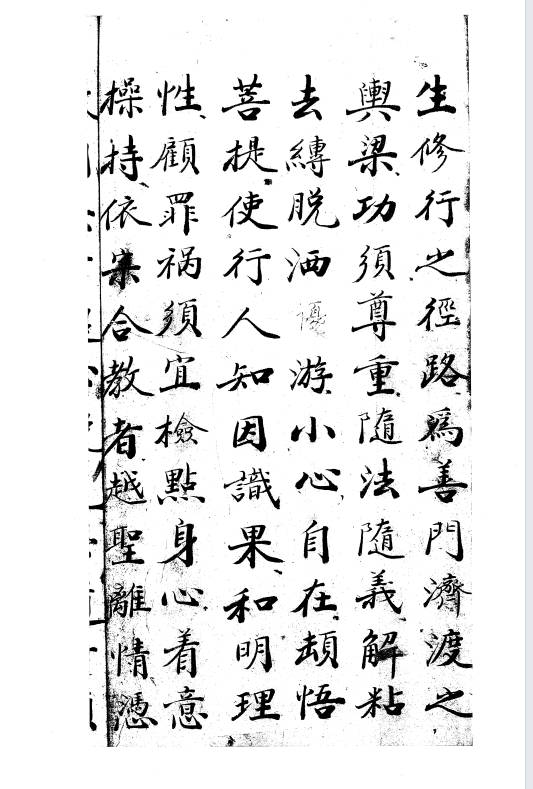 生修行之徑路爲善門濟渡之
輿梁功須尊重隨法隨義解粘
去縛脱洒優游小心自在頓悟
菩提使行人知因識果和明理
性顧罪禍須宜檢點身心着意
操持依案合教者越聖離情憑